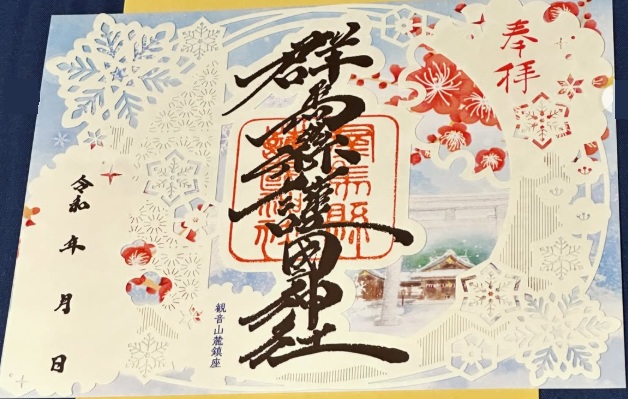 奉拝
群馬縣護國神社
観音山麓鎮座
令和 年 月 日